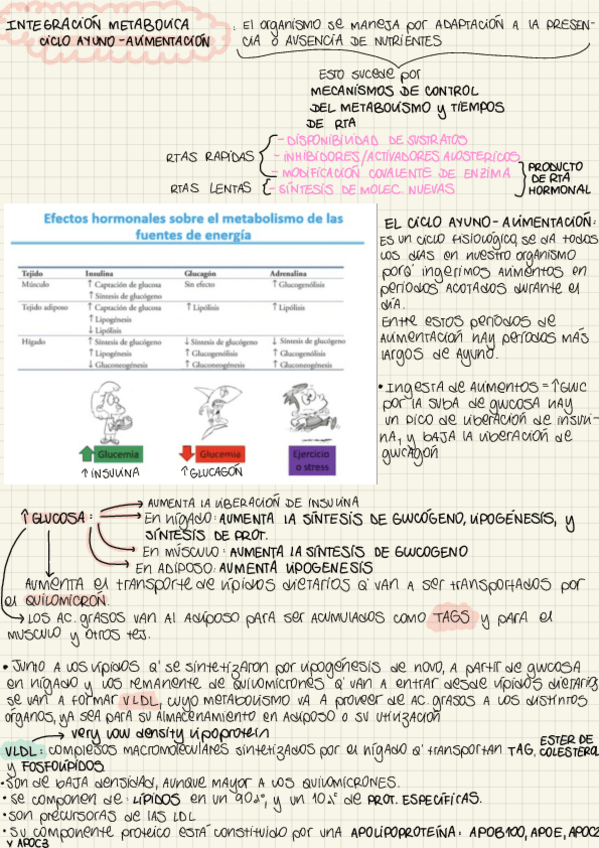 INTEGRACIÓN METABOLICA
CICLO AYUNO-ALIMENTACIÓN
: El organismo se maneja por ADAPTACIÓN A LA PRESEN-
CIA O AUSENCIA DE NUTRIENTES
Esto sucede por
MECANISMOS DE CONTROL
DEL METABOLISMO y TIEMPOS
DE RTA
RTAS RAPIDAS
- DISPONIBILIDAD DE SUSTRATOS
- INHIBIDORES/ACTIVADORES ALOSTERICOS
- MODIFICACION COVALENTE DE ENZIMA
RTAS LENTAS
- SÍNTESIS DE MOLEC. NUEVAS
PRODUCTO
DE RTA
HORMONAL
Efectos hormonales sobre el metabolismo de las
fuentes de energía
Tejido Insulina Glucagón Adrenalina
Músculo ↑ Captación de glucosa Sin efecto ↑ Glucogenólisis
↑ Síntesis de glucógeno
Tejido adiposo ↑ Captación de glucosa ↑ Lipólisis ↑ Lipólisis
↑ Lipogénesis
↓ Lipólisis
Hígado ↑ Síntesis de glucógeno ↓ Síntesis de glucógeno ↓ Síntesis de glucógeno
↑ Lipogénesis ↑ Glucogenólisis ↑ Glucogenólisis
↓ Gluconeogénesis ↑ Gluconeogénesis ↑ Gluconeogénesis
Glucemia
Glucemia
Ejercicio
o stress
↑ INSULINA
↑ GLUCAGÓN
EL CICLO AYUNO-ALIMENTACIÓN:
Es un ciclo fisiológico, se da todos
los días en nuestro organismo
porq' ingerimos alimentos en
períodos acotados durante el
día.
Entre estos períodos de
alimentación hay períodos más
largos de ayuno.
• Ingesta de alimentos = ↑GLUC
por la suba de glucosa hay
un pico de liberación de insuli-
na, y baja la liberación de
glucagón
↑ GLUCOSA :
AUMENTA LA LIBERACIÓN DE INSULINA
En hígado: AUMENTA LA SÍNTESIS DE GLUCÓGENO, LIPOGÉNESIS, y
SÍNTESIS DE PROT.
En MÚSCULO: AUMENTA LA SÍNTESIS DE GLUCOGENO
En ADIPOSO: AUMENTA LIPOGENESIS
AUMENTA el transporte de lípidos dietarios q' van a ser transportados por
el QUILOMICRÓN.
Los ac. grasos van al adiposo para ser acumulados como TAGS y para el
musculo y otros tej.
• Junto a los lípidos q' se sintetizaron por lipogénesis de novo, a partir de glucosa
en hígado y los remanente de quilomicrones q' van a entrar desde lípidos dietarios
se van a formar VLDL, cuyo metabolismo va a proveer de ac. grasos a los distintos
órganos, ya sea para su almacenamiento en adiposo o su utilización
very low density lipoprotein
VLDL: complejos macromoleculares sintetizados por el hígado q' transportan TAG, ESTER DE
COLESTEROL
y FOSFOLÍPIDOS
• Son de baja densidad, aunque mayor a los quilomicrones.
• se componen de: LÍPIDOS en un 90%, y un 10% de PROT. ESPECÍFICAS.
• son precursoras de las LDL
• Su componente proteico está constituido por una APOLIPOPROTEÍNA: APOB100, APOE, APOC2
y APOC3